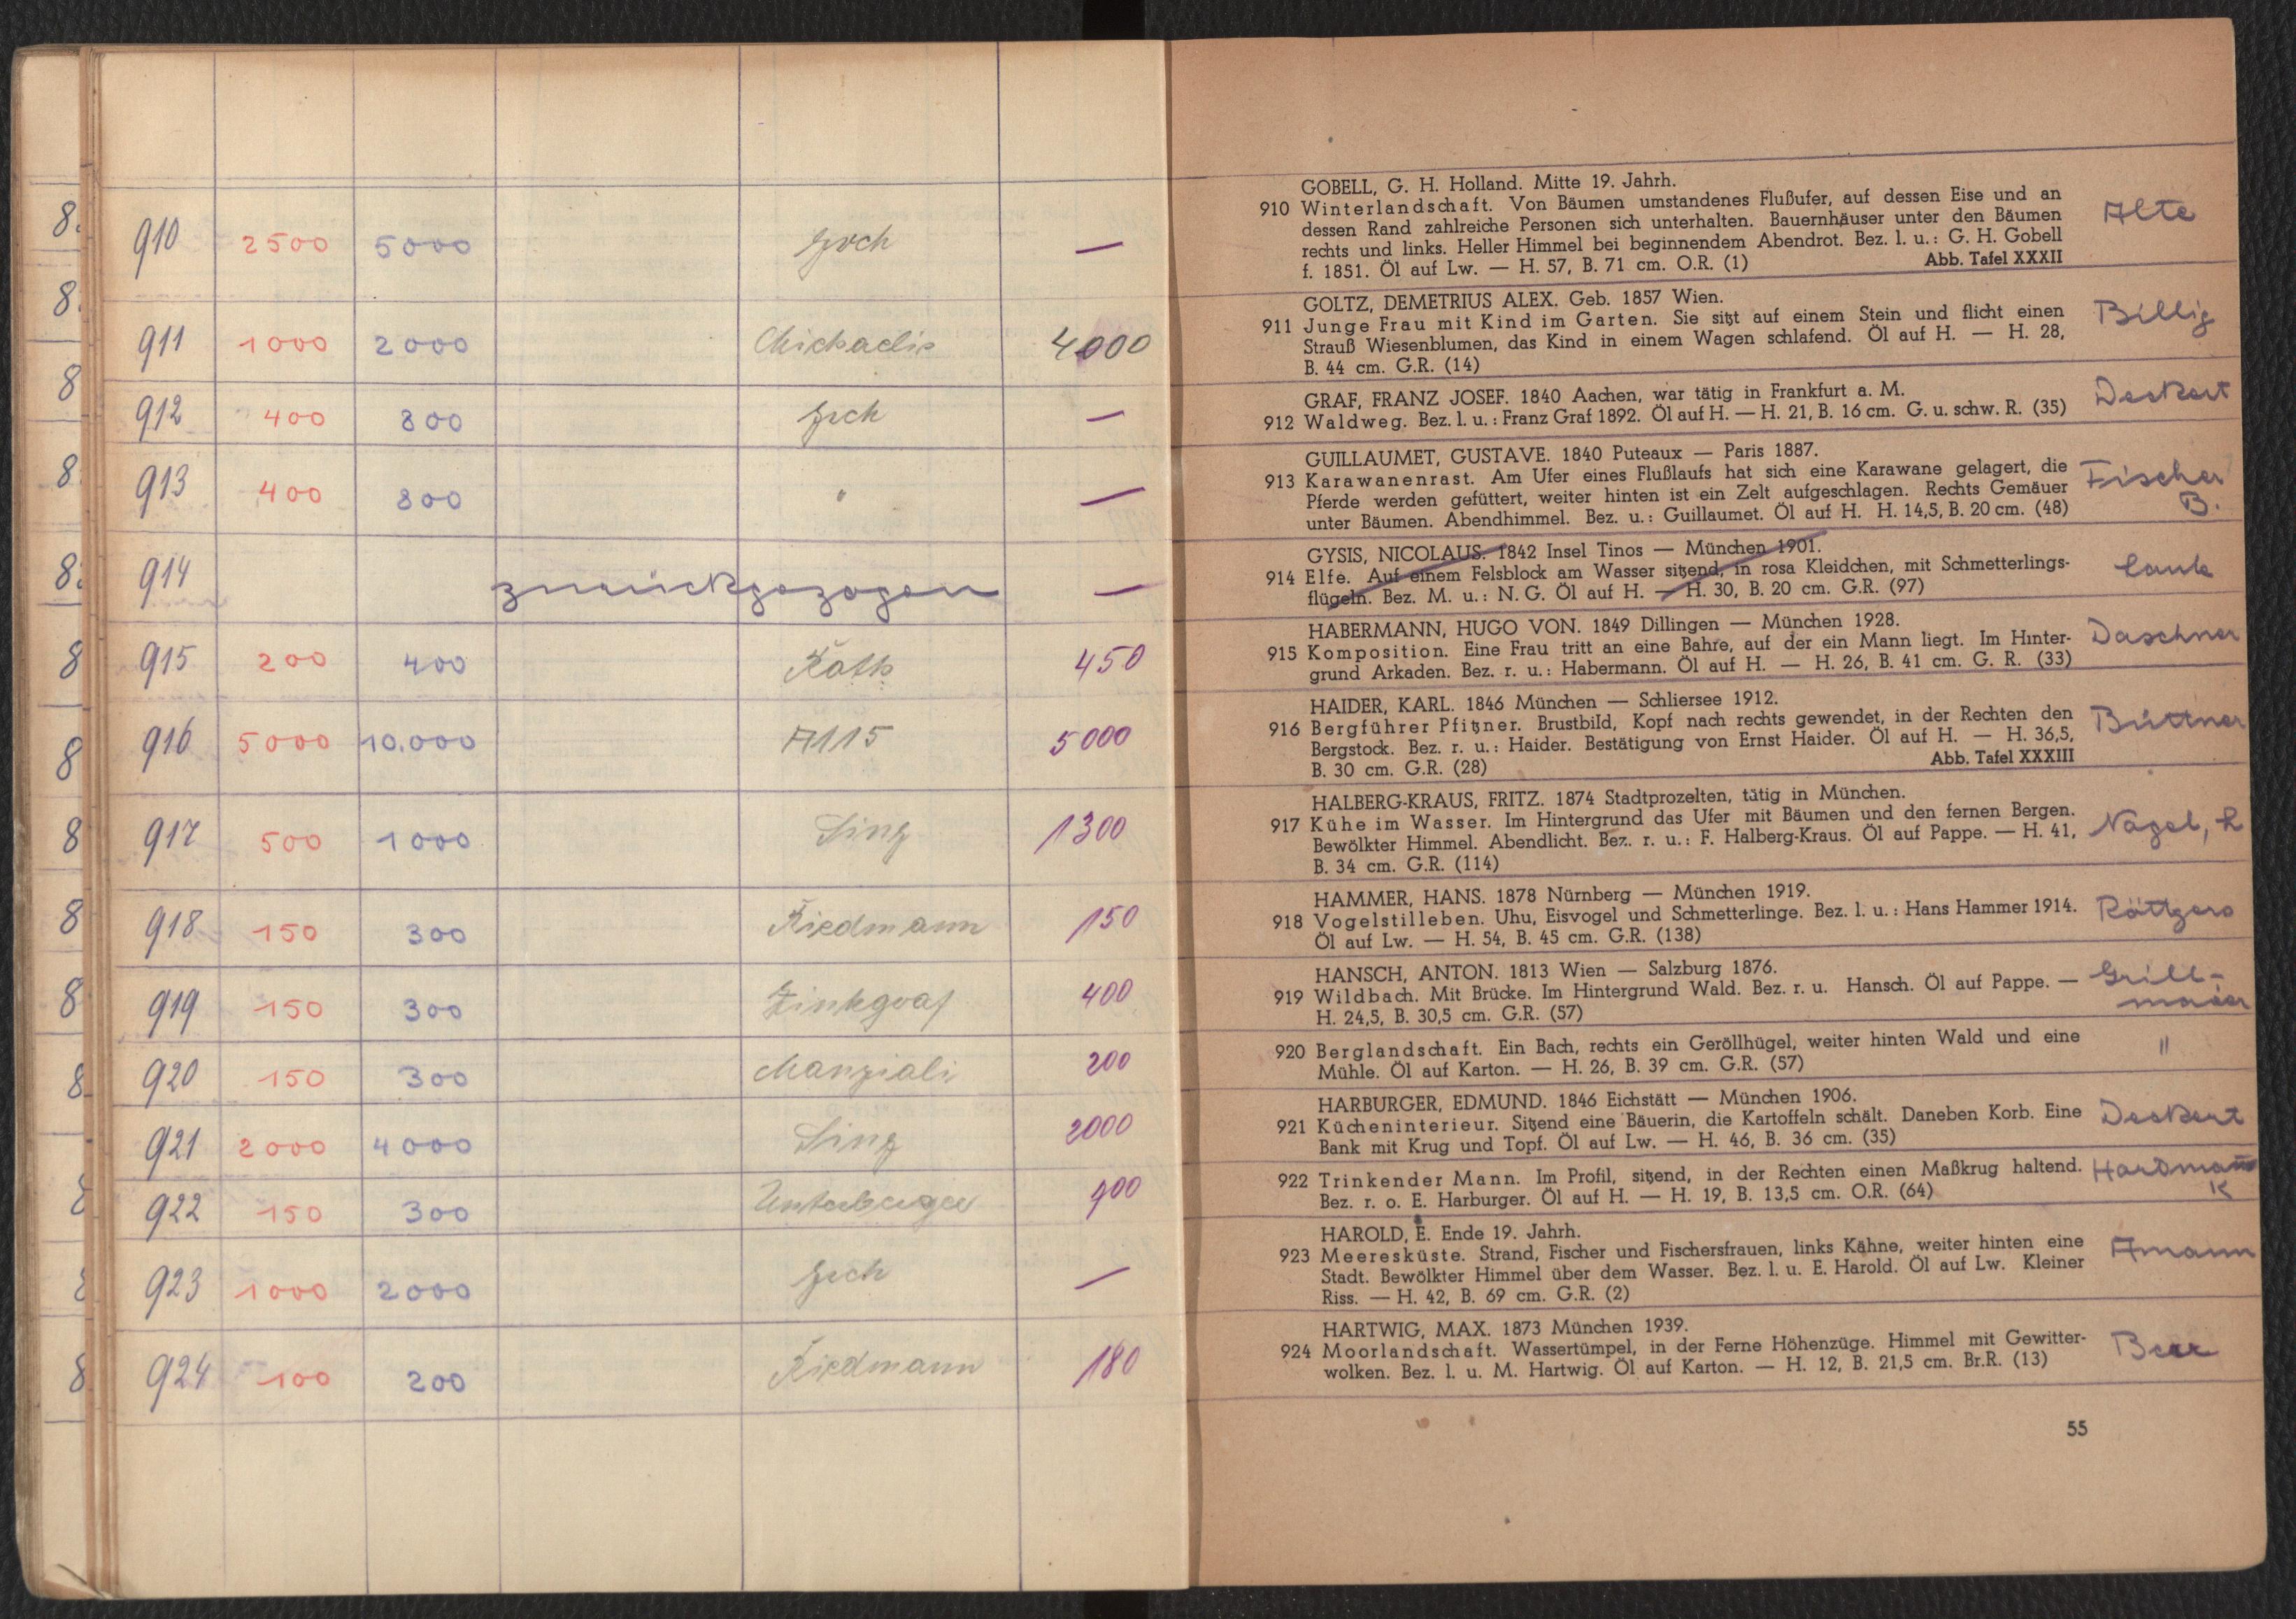 910 2500 5000 —
911 1000 2000 Michaelis 4000
912 400 800 —
913 400 800 " —
914 zurückgezogen —
915 200 400 Roth 450
916 5000 10.000 A115 5000
917 500 1000 Sing 1300
918 150 300 Riedmann 150
919 150 300 Zinkgraf 400
920 150 300 Manziali 200
921 2000 4000 Sing 2000
922 150 300 Unterberger 900
923 1000 2000 —
924 100 200 Riedmann 180
GOBELL, G. H. Holland. Mitte 19. Jahrh.
910 Winterlandschaft. Von Bäumen umstandenes Flußufer, auf dessen Eise und an
dessen Rand zahlreiche Personen sich unterhalten. Bauernhäuser unter den Bäumen
rechts und links. Heller Himmel bei beginnendem Abendrot. Bez. l. u.: G. H. Gobell
f. 1851. Öl auf Lw. — H. 57, B. 71 cm. O.R. (1) Abb. Tafel XXXII
Alte
GOLTZ, DEMETRIUS ALEX. Geb. 1857 Wien.
911 Junge Frau mit Kind im Garten. Sie sitzt auf einem Stein und flicht einen
Strauß Wiesenblumen, das Kind in einem Wagen schlafend. Öl auf H. — H. 28,
B. 44 cm. G.R. (14)
Billig
GRAF, FRANZ JOSEF. 1840 Aachen, war tätig in Frankfurt a. M.
912 Waldweg. Bez. l. u.: Franz Graf 1892. Öl auf H. — H. 21, B. 16 cm. G. u. schw. R. (35)
Deskart
GUILLAUMET, GUSTAVE. 1840 Puteaux — Paris 1887.
913 Karawanenrast. Am Ufer eines Flußlaufs hat sich eine Karawane gelagert, die
Pferde werden gefüttert, weiter hinten ist ein Zelt aufgeschlagen. Rechts Gemäuer
unter Bäumen. Abendhimmel. Bez. u.: Guillaumet. Öl auf H. H. 14,5, B. 20 cm. (48)
Fischer
B.
GYSIS, NICOLAUS. 1842 Insel Tinos — München 1901.
914 Elfe. Auf einem Felsblock am Wasser sitzend, in rosa Kleidchen, mit Schmetterlings-
flügeln. Bez. M. u.: N. G. Öl auf H. — H. 30, B. 20 cm. G.R. (97)
HABERMANN, HUGO VON. 1849 Dillingen — München 1928.
915 Komposition. Eine Frau tritt an eine Bahre, auf der ein Mann liegt. Im Hinter-
grund Arkaden. Bez. r. u.: Habermann. Öl auf H. — H. 26, B. 41 cm. G. R. (33)
Daschner
HAIDER, KARL. 1846 München — Schliersee 1912.
916 Bergführer Pfitzner. Brustbild, Kopf nach rechts gewendet, in der Rechten den
Bergstock. Bez. r. u.: Haider. Bestätigung von Ernst Haider. Öl auf H. — H. 36,5,
B. 30 cm. G.R. (28) Abb. Tafel XXXIII
Büttner
HALBERG-KRAUS, FRITZ. 1874 Stadtprozelten, tätig in München.
917 Kühe im Wasser. Im Hintergrund das Ufer mit Bäumen und den fernen Bergen.
Bewölkter Himmel. Abendlicht. Bez. r. u.: F. Halberg-Kraus. Öl auf Pappe. — H. 41,
B. 34 cm. G.R. (114)
Nagel,
HAMMER, HANS. 1878 Nürnberg — München 1919.
918 Vogelstilleben. Uhu, Eisvogel und Schmetterlinge. Bez. l. u.: Hans Hammer 1914.
Öl auf Lw. — H. 54, B. 45 cm. G.R. (138)
Röttgers
HANSCH, ANTON. 1813 Wien — Salzburg 1876.
919 Wildbach. Mit Brücke. Im Hintergrund Wald. Bez. r. u. Hansch. Öl auf Pappe. —
H. 24,5, B. 30,5 cm. G.R. (57)
Grill-
maier
920 Berglandschaft. Ein Bach, rechts ein Geröllhügel, weiter hinten Wald und eine
Mühle. Öl auf Karton. — H. 26, B. 39 cm. G.R. (57)
"
HARBURGER, EDMUND. 1846 Eichstätt — München 1906.
921 Kücheninterieur. Sitzend eine Bäuerin, die Kartoffeln schält. Daneben Korb. Eine
Bank mit Krug und Topf. Öl auf Lw. — H. 46, B. 36 cm. (35)
Deskart
922 Trinkender Mann. Im Profil, sitzend, in der Rechten einen Maßkrug haltend.
Bez. r. o. E. Harburger. Öl auf H. — H. 19, B. 13,5 cm. O.R. (64)
Hartmann
K
HAROLD, E. Ende 19. Jahrh.
923 Meeresküste. Strand, Fischer und Fischersfrauen, links Kähne, weiter hinten eine
Stadt. Bewölkter Himmel über dem Wasser. Bez. l. u. E. Harold. Öl auf Lw. Kleiner
Riss. — H. 42, B. 69 cm. G.R. (2)
Amann
HARTWIG, MAX. 1873 München 1939.
924 Moorlandschaft. Wassertümpel, in der Ferne Höhenzüge. Himmel mit Gewitter-
wolken. Bez. l. u. M. Hartwig. Öl auf Karton. — H. 12, B. 21,5 cm. Br.R. (13)
Beer
55